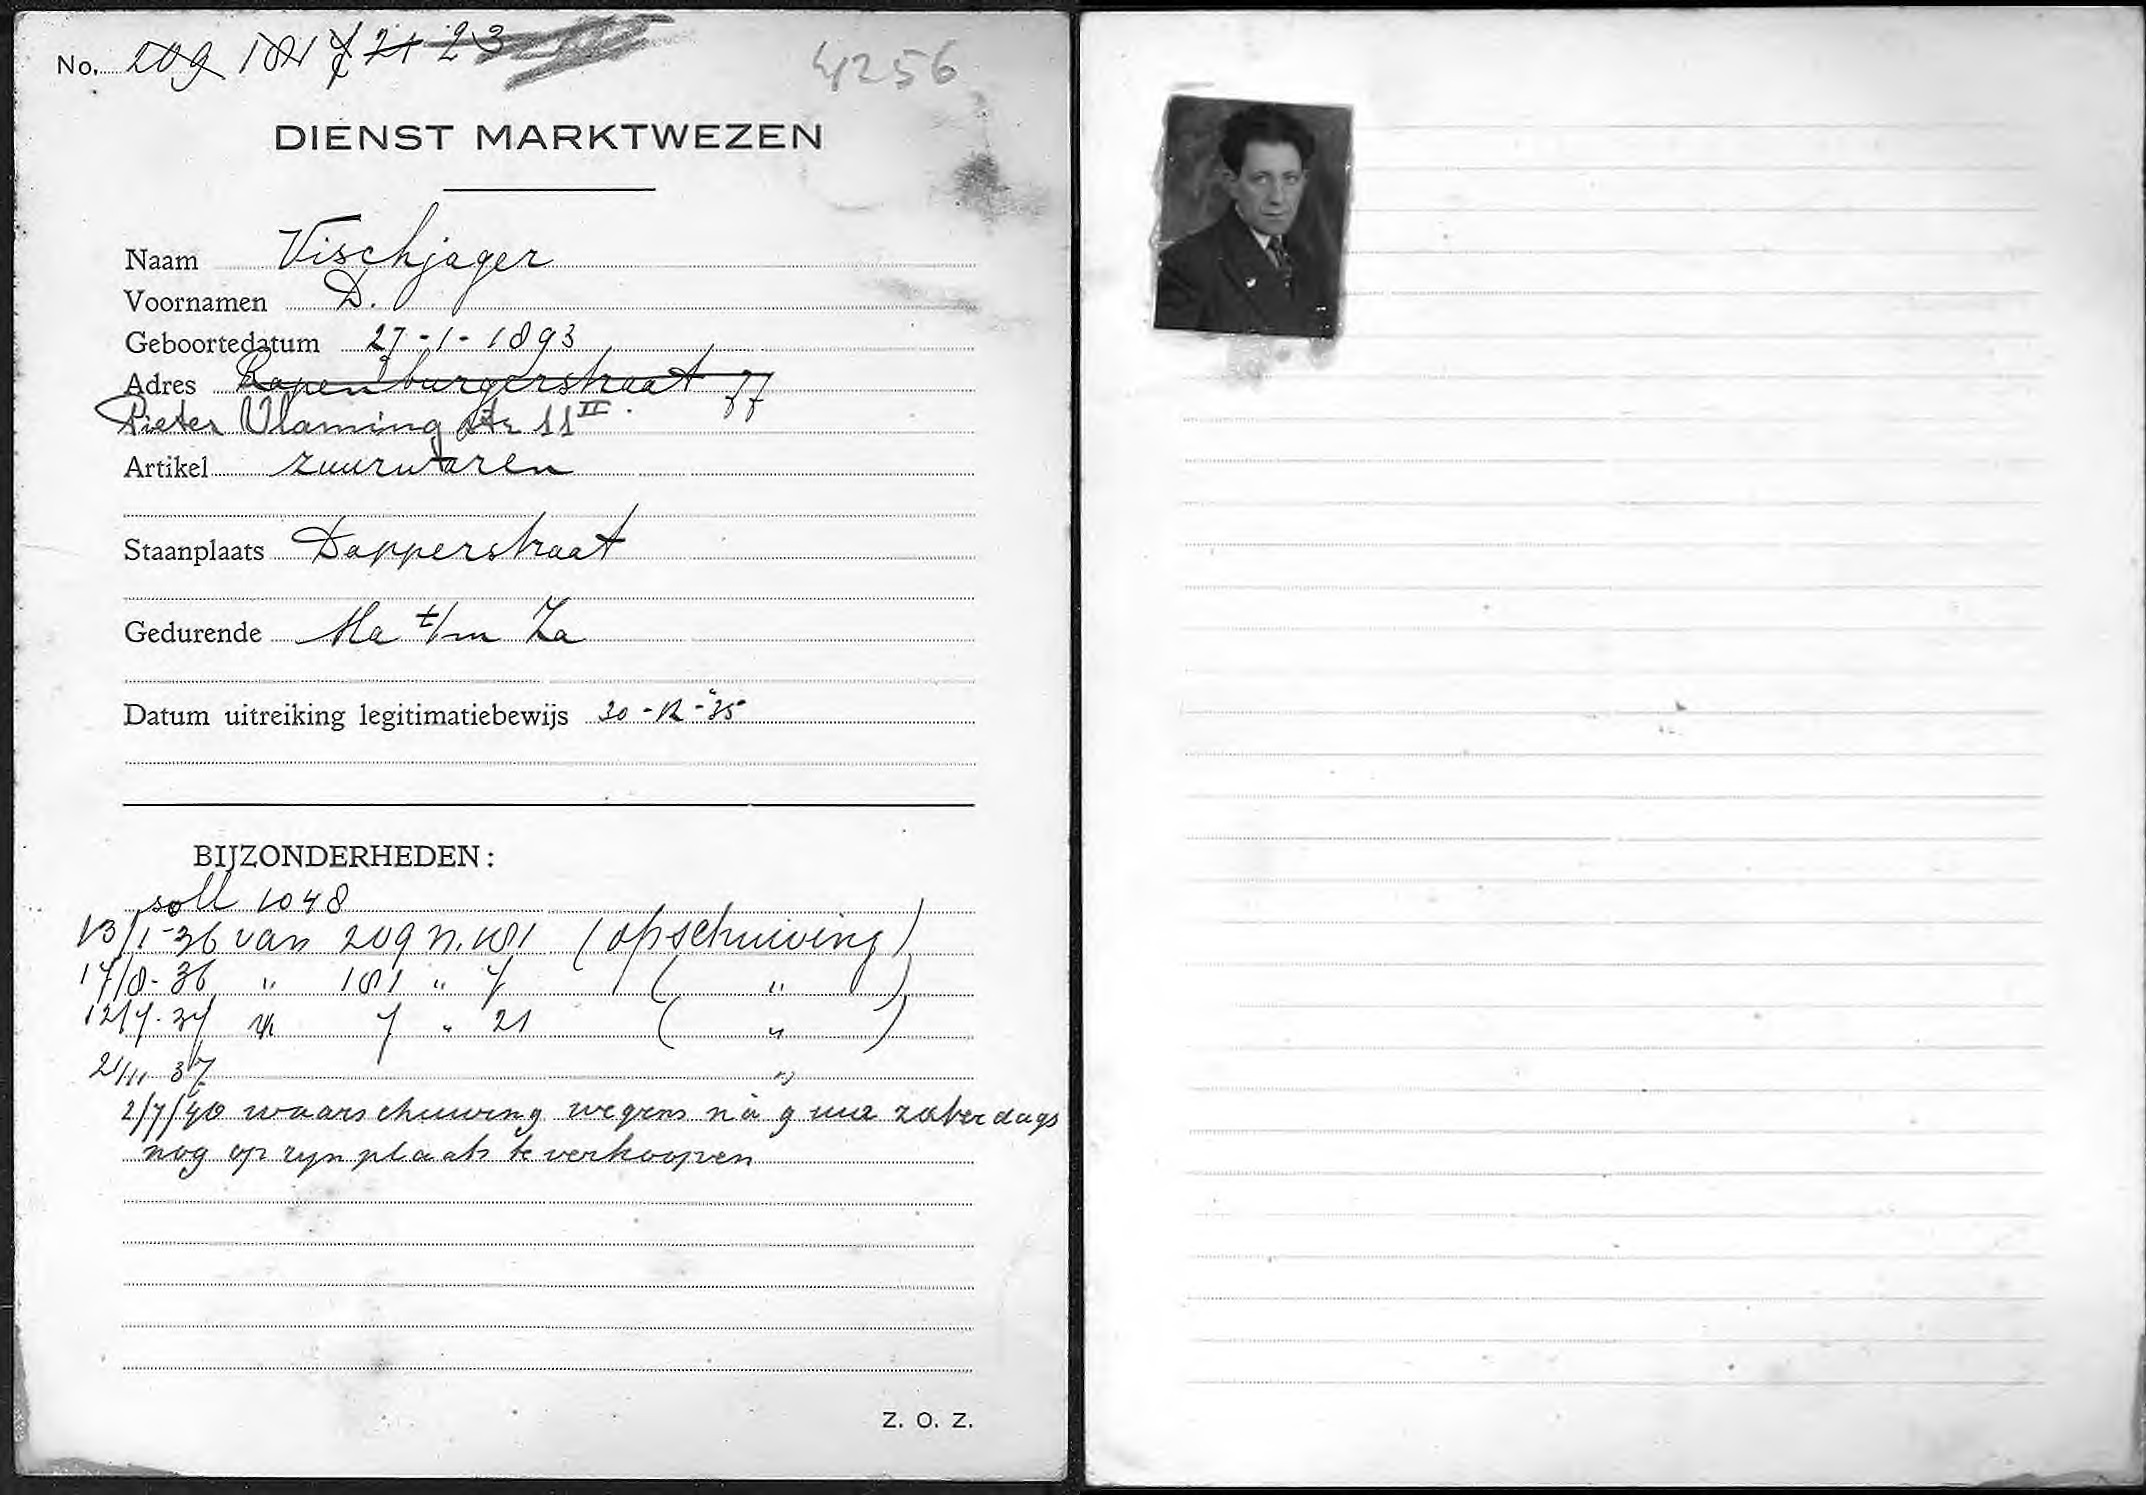 No. 209 181 7 21 23
4256
DIENST MARKTWEZEN
Naam Vischjager
Voornamen D.
Geboortedatum 27-1-1893
Adres Rapenburgerstraat 77
Pieter Vlaming str 11 II.
Artikel zuurwaren
Staanplaats Dapperstraat
Gedurende Ma t/m Za
Datum uitreiking legitimatiebewijs 30-12-'35
BIJZONDERHEDEN:
soll 1048
13/1-36 van 209 n. 181 (opschuiving)
17/8-36 " 181 " 7 ( " )
12/7-37 7 " 21 ( " )
2/11 37 "
2/7/40 waarschuwing wegens nà 9 uur zaterdags
nog op zijn plaats te verkoopen
Z. O. Z.